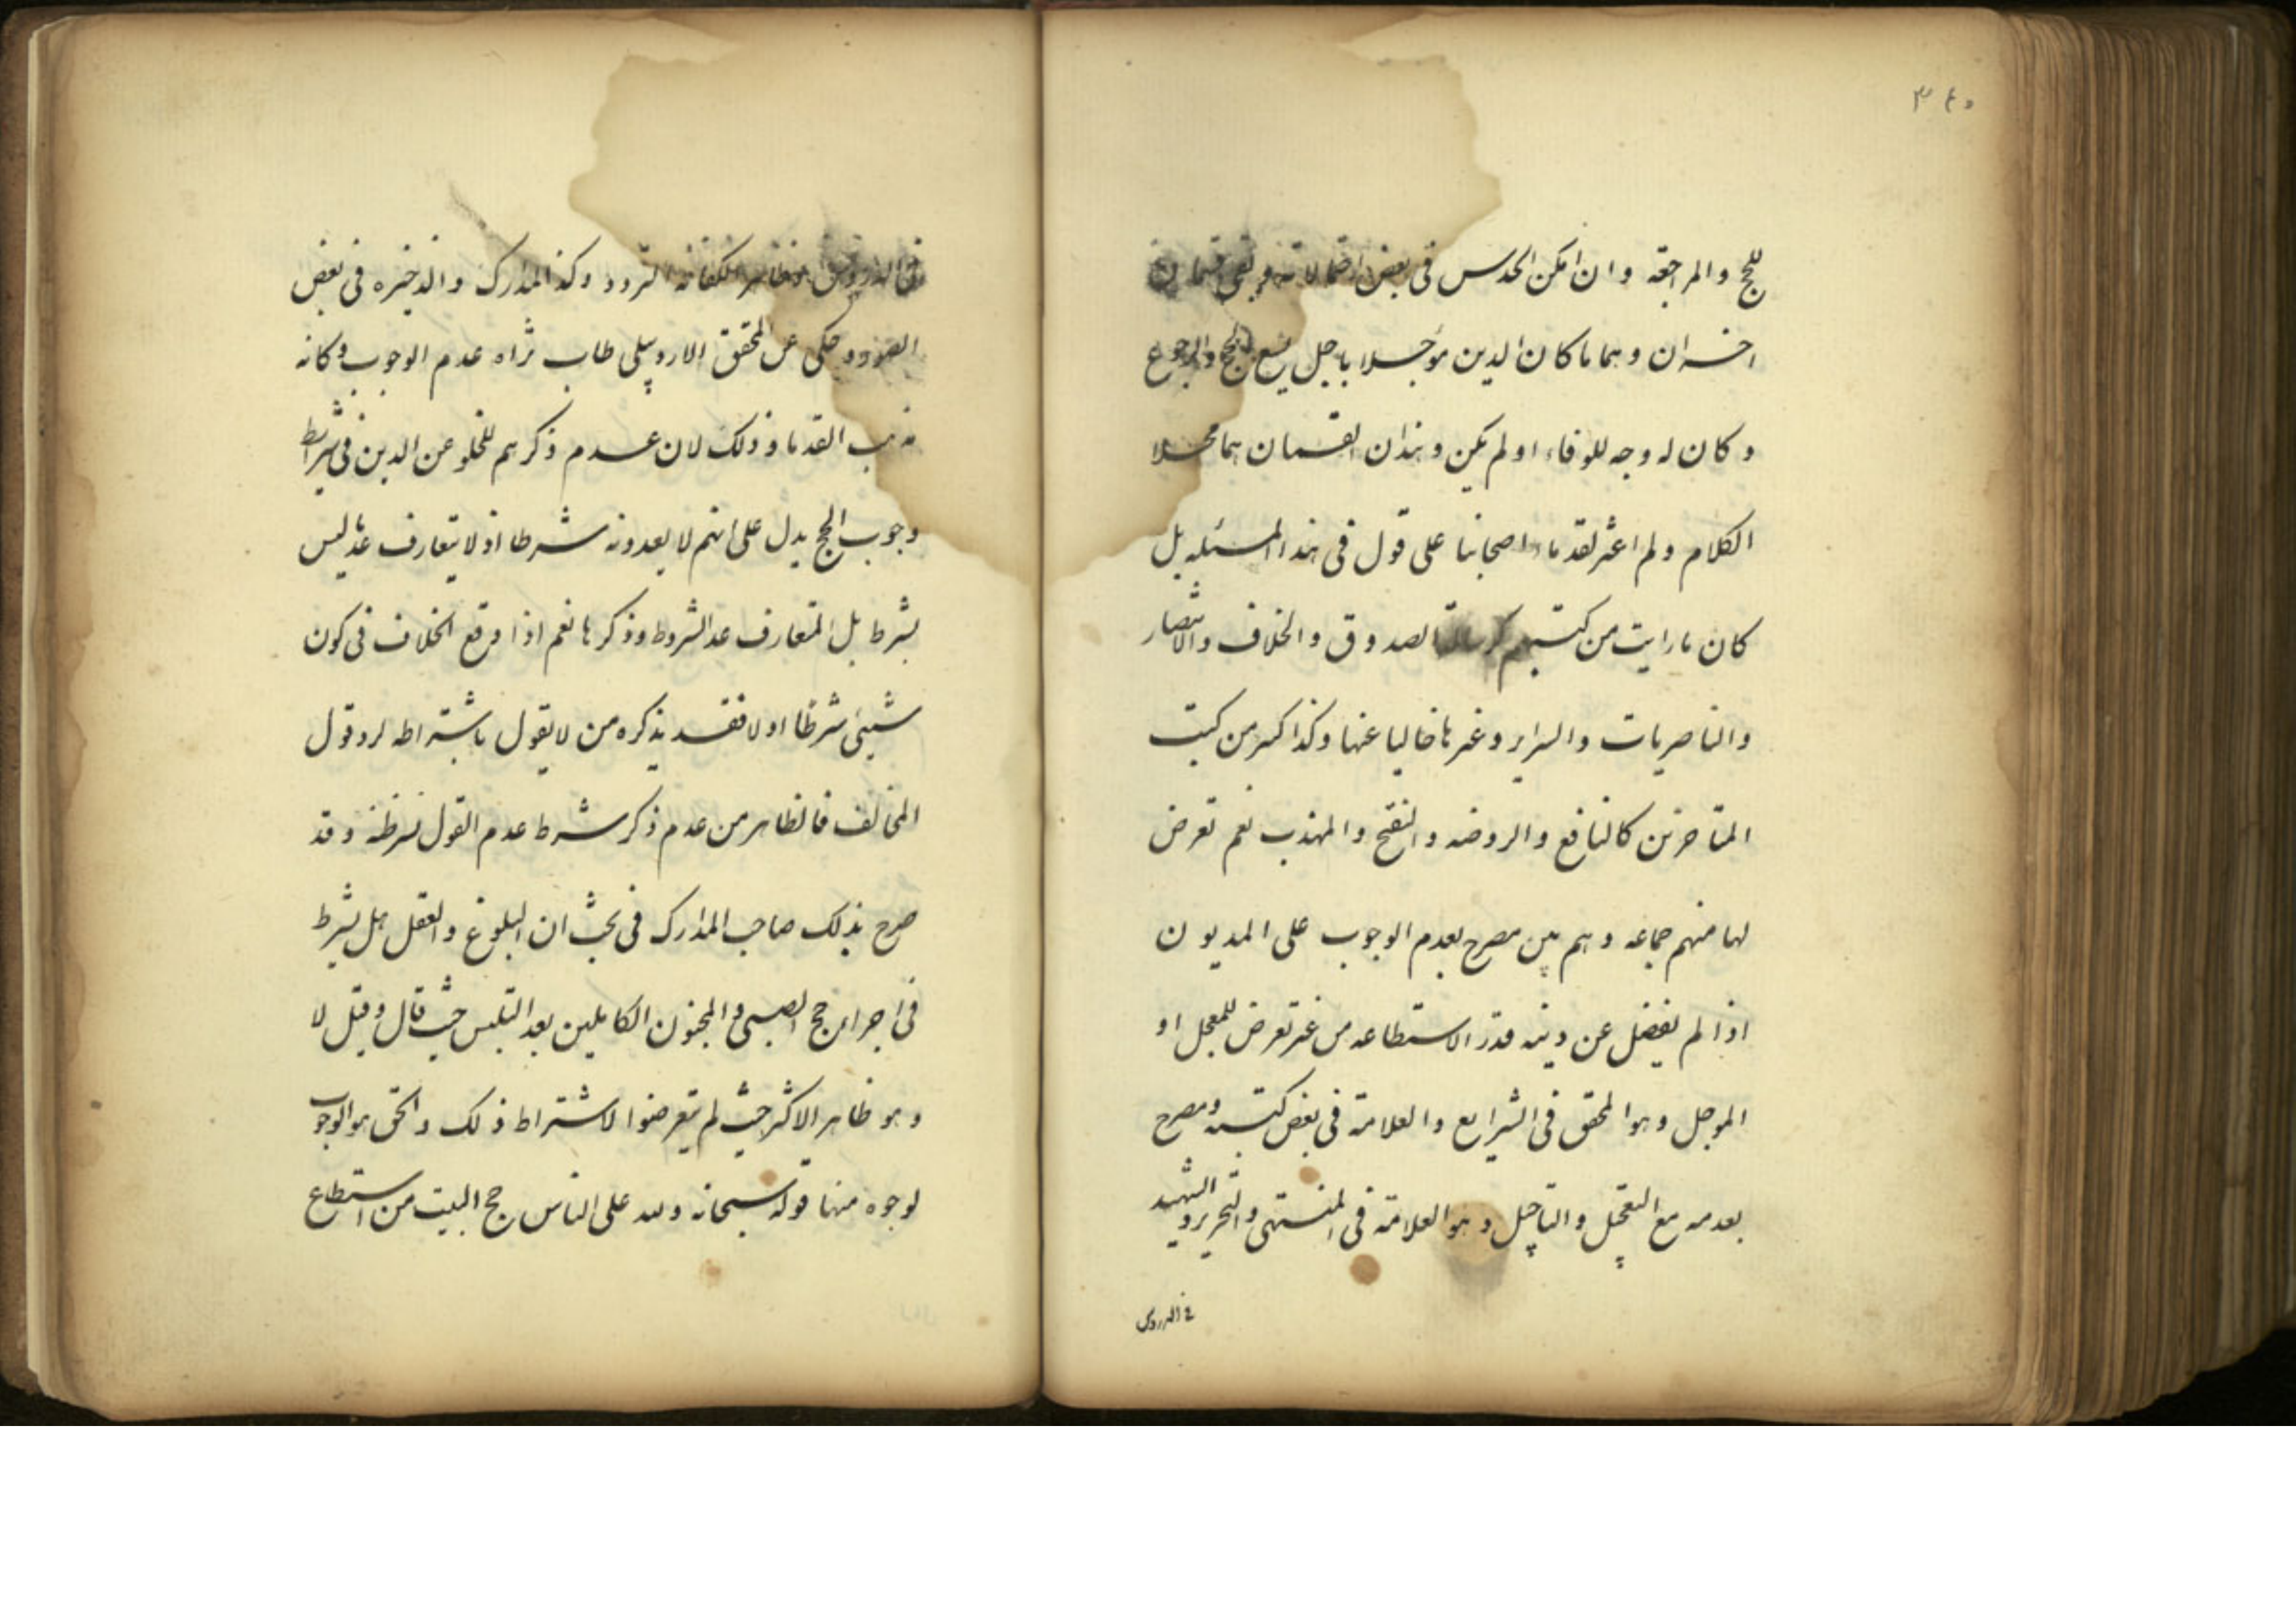 للحج والمراجعة وان امكن الحدس فى بعض احتمالاته وبقى قسمان
اخران وهما ما كان الدين مؤجلا باجل يسع للحج والرجوع
وكان له وجه للوفاء او لم يكن وهذان القسمان هما محلا
الكلام ولم اعثر لقدماء اصحابنا على قول فى هذا المسئله بل
كان ما رايت من كتبهم الصدوق والخلاف والانتصار
والناصريات والسراير وغيرها خاليا عنها وكذا كثير من كتب
المتاخرين كالنافع والروضه والتنقيح والمهذب نعم تعرض
لها منهم جماعه وهم بين مصرح بعدم الوجوب على المديون
اذا لم يفضل عن دينه قدر الاستطاعه من غير تعرض للمعجل او
الموجل وهو المحقق فى الشرايع والعلامة فى بعض كتبه ومصرح
بعدمه مع التعجيل والتاجيل وهو العلامة فى المنتهى والتحرير والشهيد
فى الدروس
فى الدروس وظاهر التردد وكذا المدارك والذخيره فى بعض
الصور وحكى عن المحقق الاردبيلى طاب ثراه عدم الوجوب وكانه
مذهب القدماء وذلك لان عدم ذكرهم للخلو عن الدين فى شرايط
وجوب الحج يدل على انهم لا يعدونه شرطا اذ لا يتعارف عد ما ليس
بشرط بل المتعارف عد الشروط وذكرها نعم اذا وقع الخلاف فى كون
شيئ شرطا او لا فقد يذكره من لا يقول باشتراطه لرد قول
المخالف فالظاهر من عدم ذكر شرط عدم القول بشرطيته وقد
صرح بذلك صاحب المدارك فى بحث ان البلوغ والعقل هل يشرط
فى اجزاء حج الصبى والمجنون الكاملين بعد التلبس حيث قال وقيل لا
وهو ظاهر الاكثر حيث لم يتعرضوا لاشتراط ذلك والحق هو الوجوب
لوجوه منها قوله سبحانه ولله على الناس حج البيت من استطاع